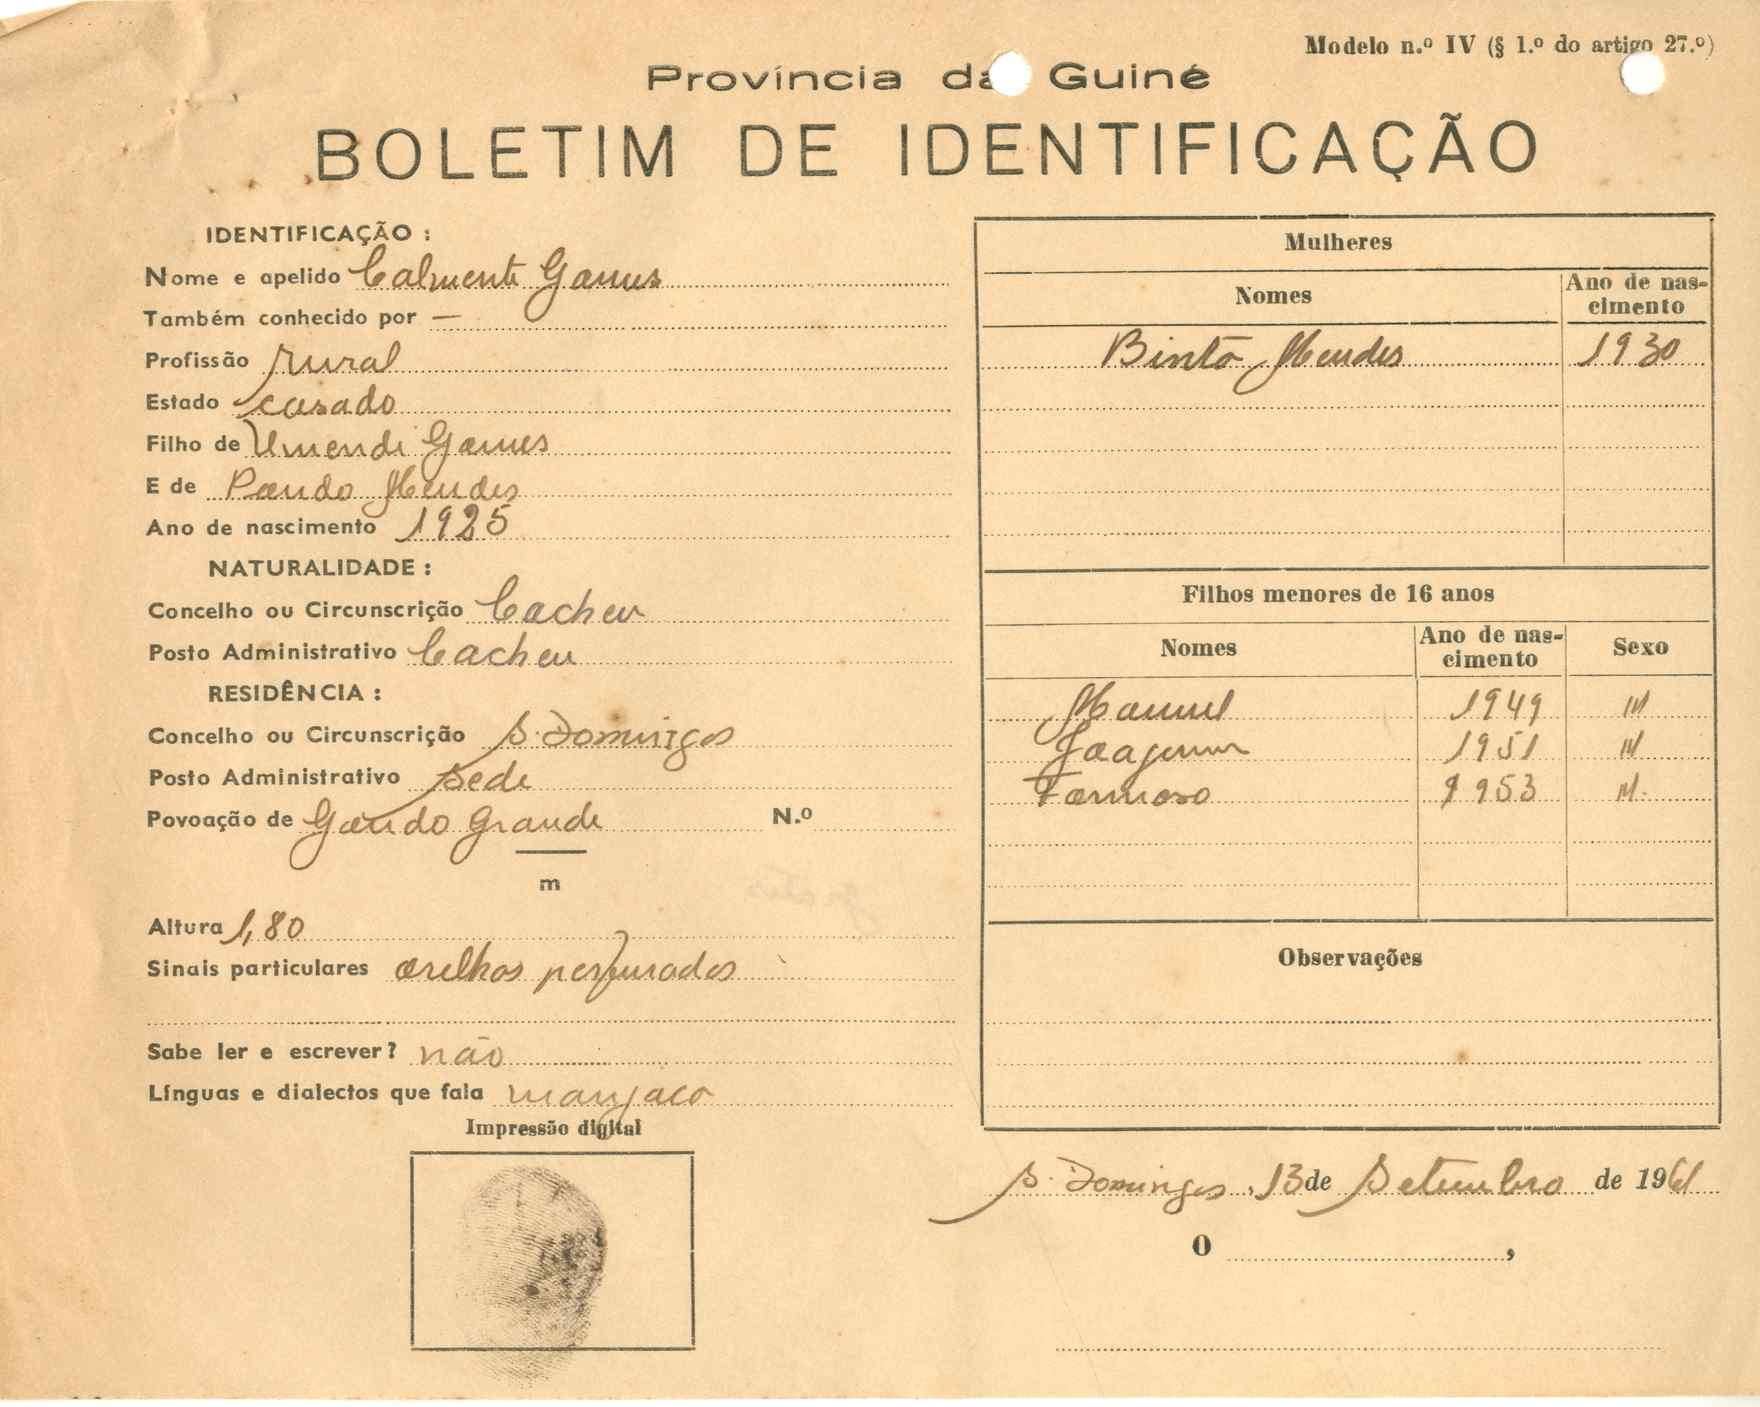 Modelo n.º IV (§ 1.º do artigo 27.º)
Província da Guiné
BOLETIM DE IDENTIFICAÇÃO
IDENTIFICAÇÃO :
Nome e apelido Calmente Gomes
Também conhecido por —
Profissão rural
Estado casado
Filho de Umendi Gomes
E de Pando Mendes
Ano de nascimento 1925
NATURALIDADE :
Concelho ou Circunscrição Cacheu
Posto Administrativo Cacheu
RESIDÊNCIA :
Concelho ou Circunscrição S. Domingos
Posto Administrativo Sede
Povoação de Gondo Grande N.º
m
Altura 1,80
Sinais particulares orelhas perfuradas
Sabe ler e escrever? não
Línguas e dialectos que fala manjaco
Impressão digital
Mulheres
Nomes Ano de nas-
cimento
Binto Mendes 1930
Filhos menores de 16 anos
Nomes Ano de nas-
cimento Sexo
Manuel 1949 M
Joaquim 1951 M
Formoso 1953 M.
Observações
S. Domingos, 13 de Setembro de 1961
O ,